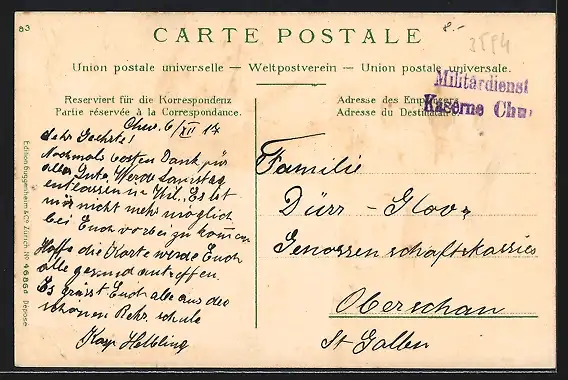 83
CARTE POSTALE
8.-
2594
Union postale universelle — Weltpostverein — Union postale universale.
Militärdienst
Kaserne Chur
Reserviert für die Korrespondenz
Partie réservée à la Correspondance.
Adresse des Empfängers
Adresse du Destinataire
Chur, 6/XII 17
Sehr Geehrte!
Nochmals besten Dank für
alles Gute. Werde Samstag
entlassen in Wil. Es ist
mir nicht mehr möglich
bei Euch vorbei zu kommen
Hoffe die Karte werde Euch
alle gesund antreffen.
Es grüsst Euch alle aus der
schönen Rekr. schule
Helbling
Familie
Dürr -
Genossenschaftskassier
Oberschan
St Gallen
Edition Guggenheim & Co., Zürich, No. Déposé